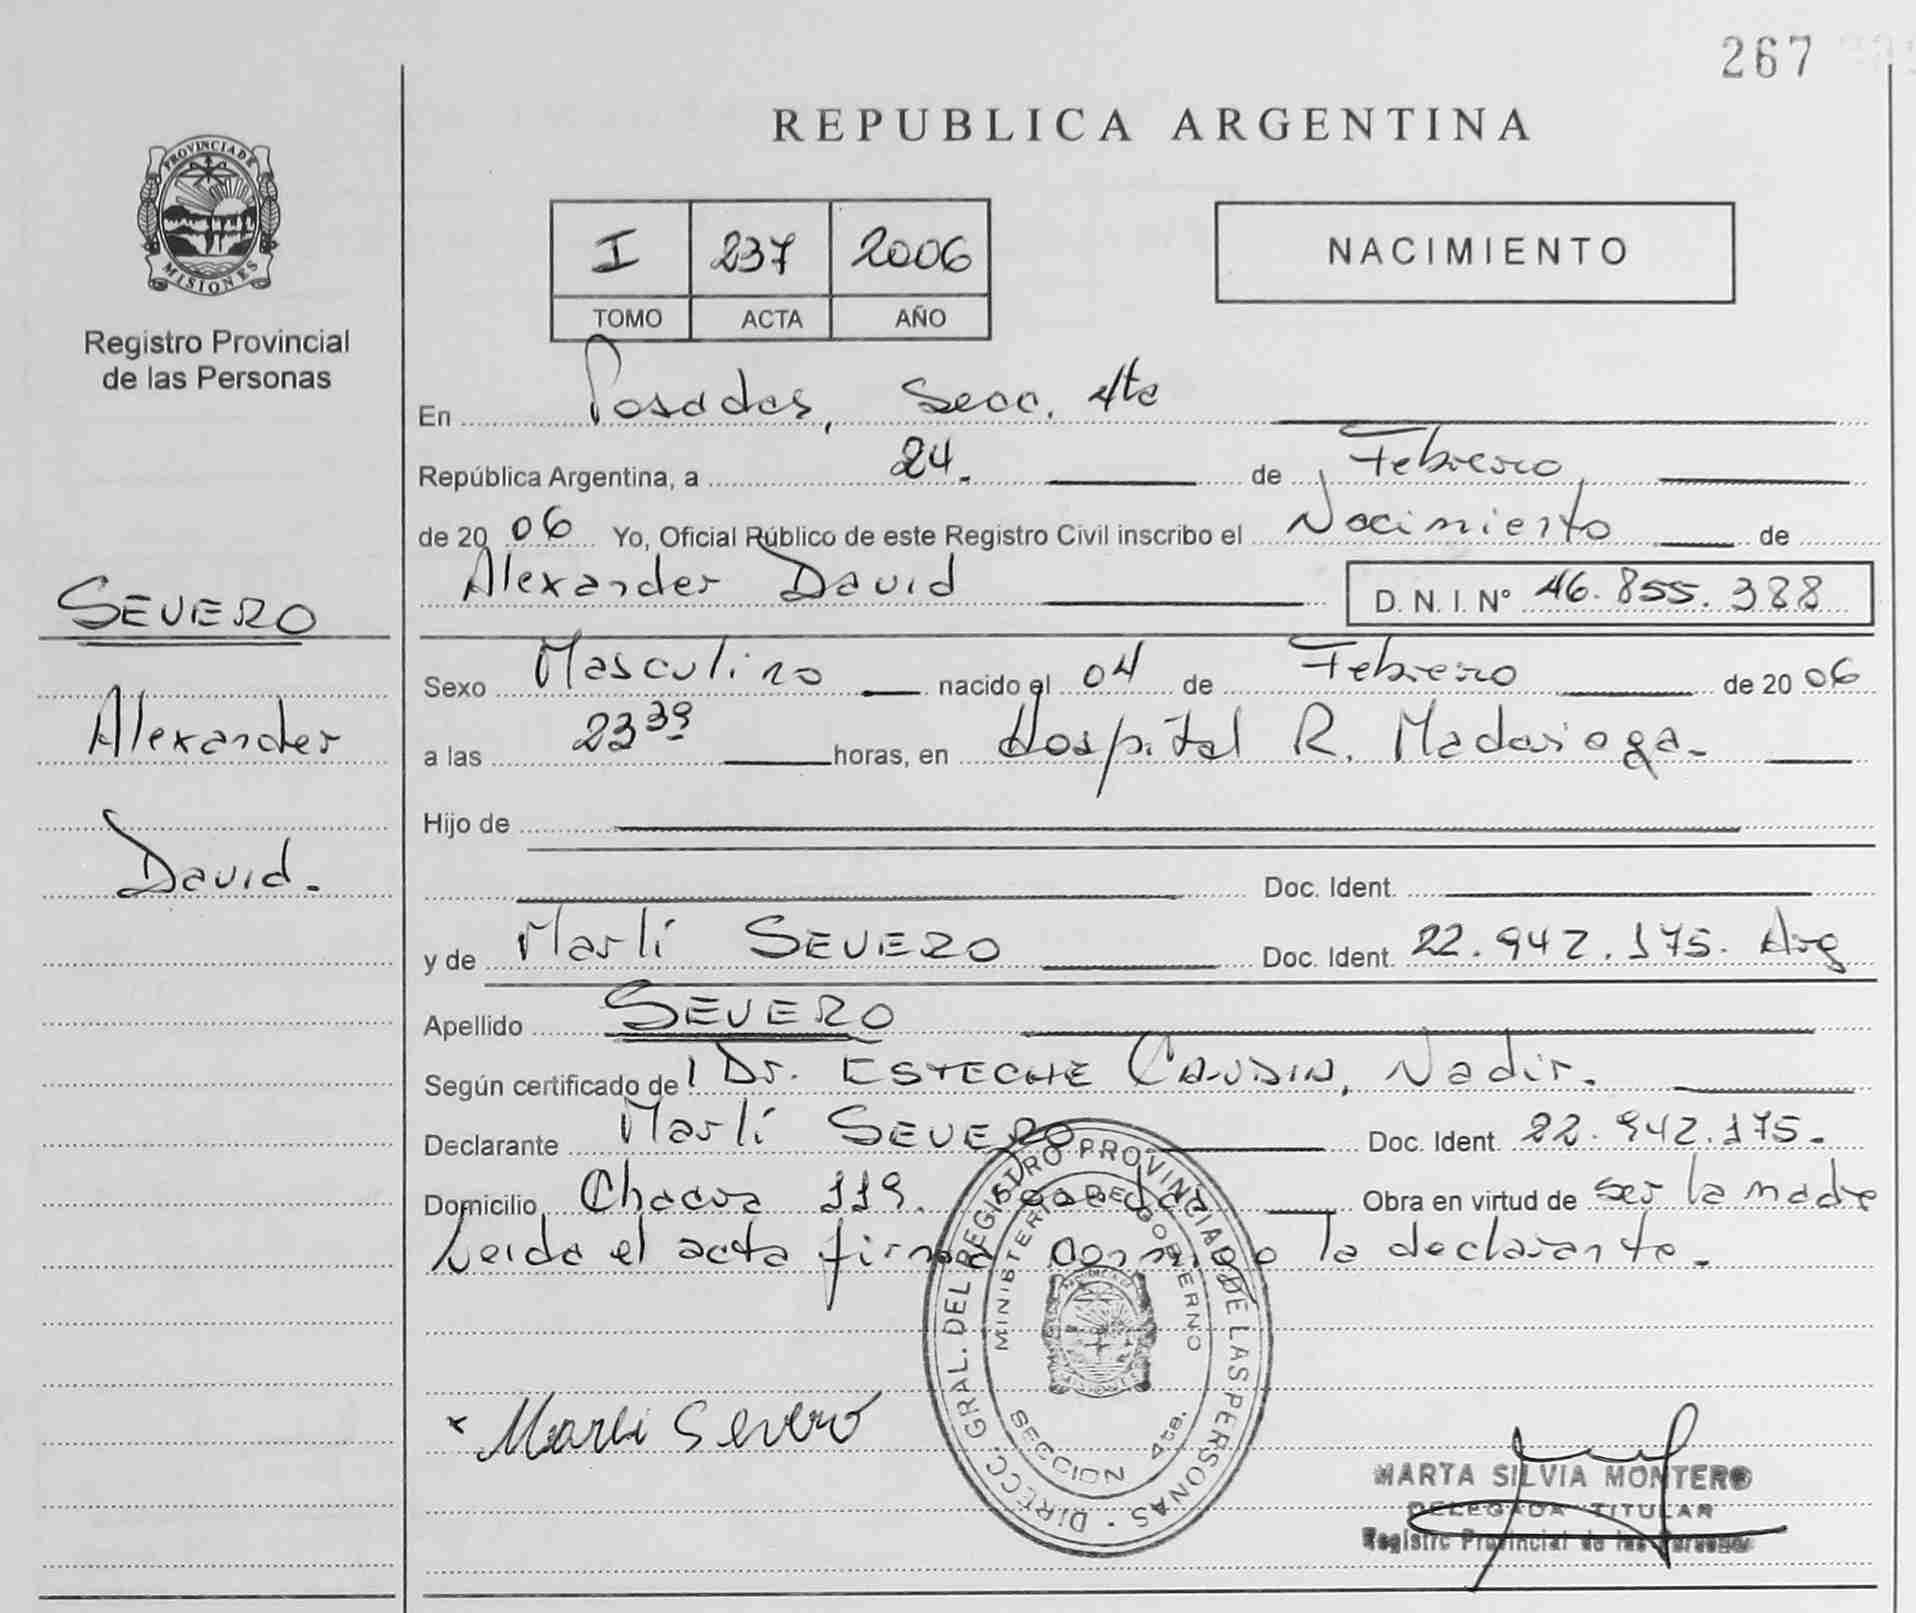 267
REPUBLICA ARGENTINA
PROVINCIA DE
MISIONES
Registro Provincial
de las Personas
I 237 2006
TOMO ACTA AÑO
NACIMIENTO
En Posadas, Secc. 4ta
República Argentina, a 24. de Febrero
de 20 06 Yo, Oficial Público de este Registro Civil inscribo el Nacimiento de
Alexander David D. N. I. N° 46.855.388
SEVERO
Alexander
David.
Sexo Masculino nacido el 04 de Febrero de 20 06
a las 23 39 horas, en Hospital R. Madariaga.
Hijo de
Doc. Ident.
y de Marlí SEVERO Doc. Ident. 22.942.175. Arg
Apellido SEVERO
Según certificado de Dr. ESTECHE Nadir.
Declarante Marlí SEVERO Doc. Ident. 22.942.175.
Domicilio Chacra 119. Posadas Obra en virtud de ser la madre
Leida el acta firma conmigo la declarante.
DIRECC. GRAL. DEL REGISTRO PROVINCIAL DE LAS PERSONAS
MINISTERIO DE GOBIERNO
SECCION 4ta.
x Marli Severo
MARTA SILVIA MONTERO
DELEGADA TITULAR
Registro Provincial de las Personas